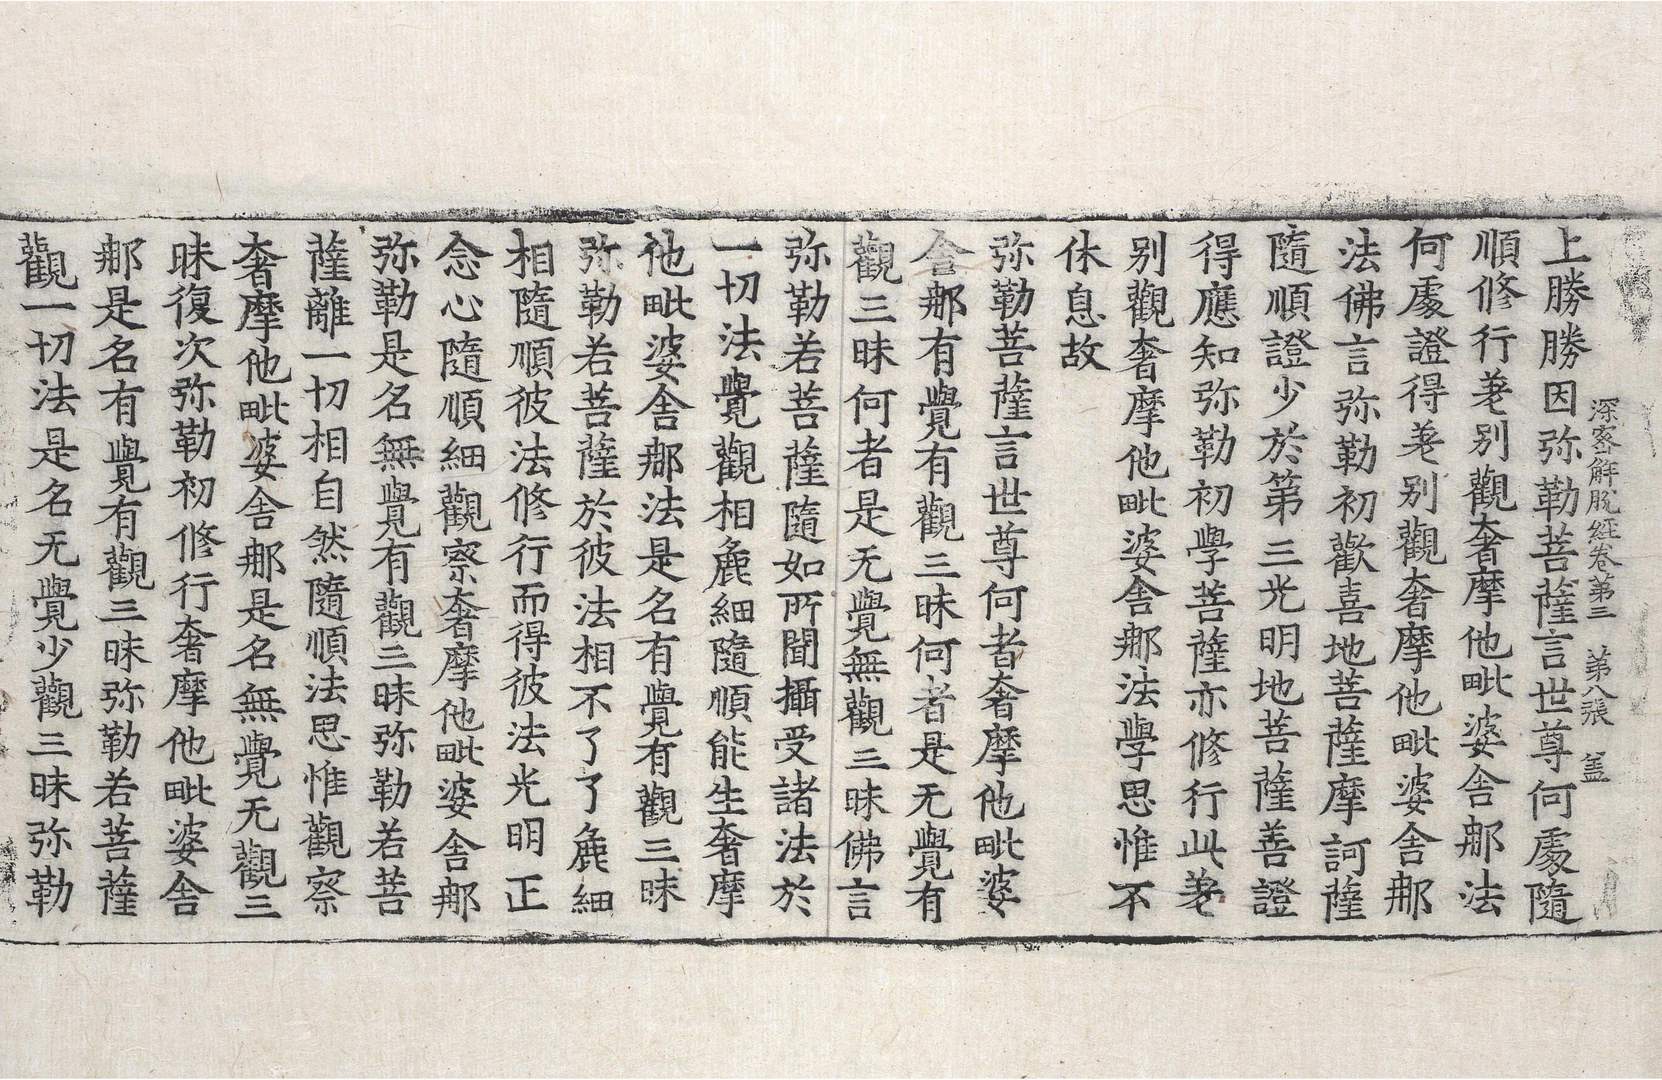 深密解脫經卷第三　第八張　盖
上勝勝因弥勒菩薩言世尊何處隨
順修行差别觀奢摩他毗婆舍那法
何處證得差别觀奢摩他毗婆舍那
法佛言弥勒初歡喜地菩薩摩訶薩
隨順證少於第三光明地菩薩善證
得應知弥勒初學菩薩亦修行此差
别觀奢摩他毗婆舍那法學思惟不
休息故
弥勒菩薩言世尊何者奢摩他毗婆
舍那有覺有觀三昧何者是无覺有
觀三昧何者是无覺無觀三昧佛言
弥勒若菩薩隨如所聞攝受諸法於
一切法覺觀相麁細隨順能生奢摩
他毗婆舍那法是名有覺有觀三昧
弥勒若菩薩於彼法相不了了麁細
相隨順彼法修行而得彼法光明正
念心隨順細觀察奢摩他毗婆舍那
弥勒是名無覺有觀三昧弥勒若菩
薩離一切相自然隨順法思惟觀察
奢摩他毗婆舍那是名無覺无觀三
昧復次弥勒初修行奢摩他毗婆舍
那是名有覺有觀三昧弥勒若菩薩
觀一切法是名无覺少觀三昧弥勒